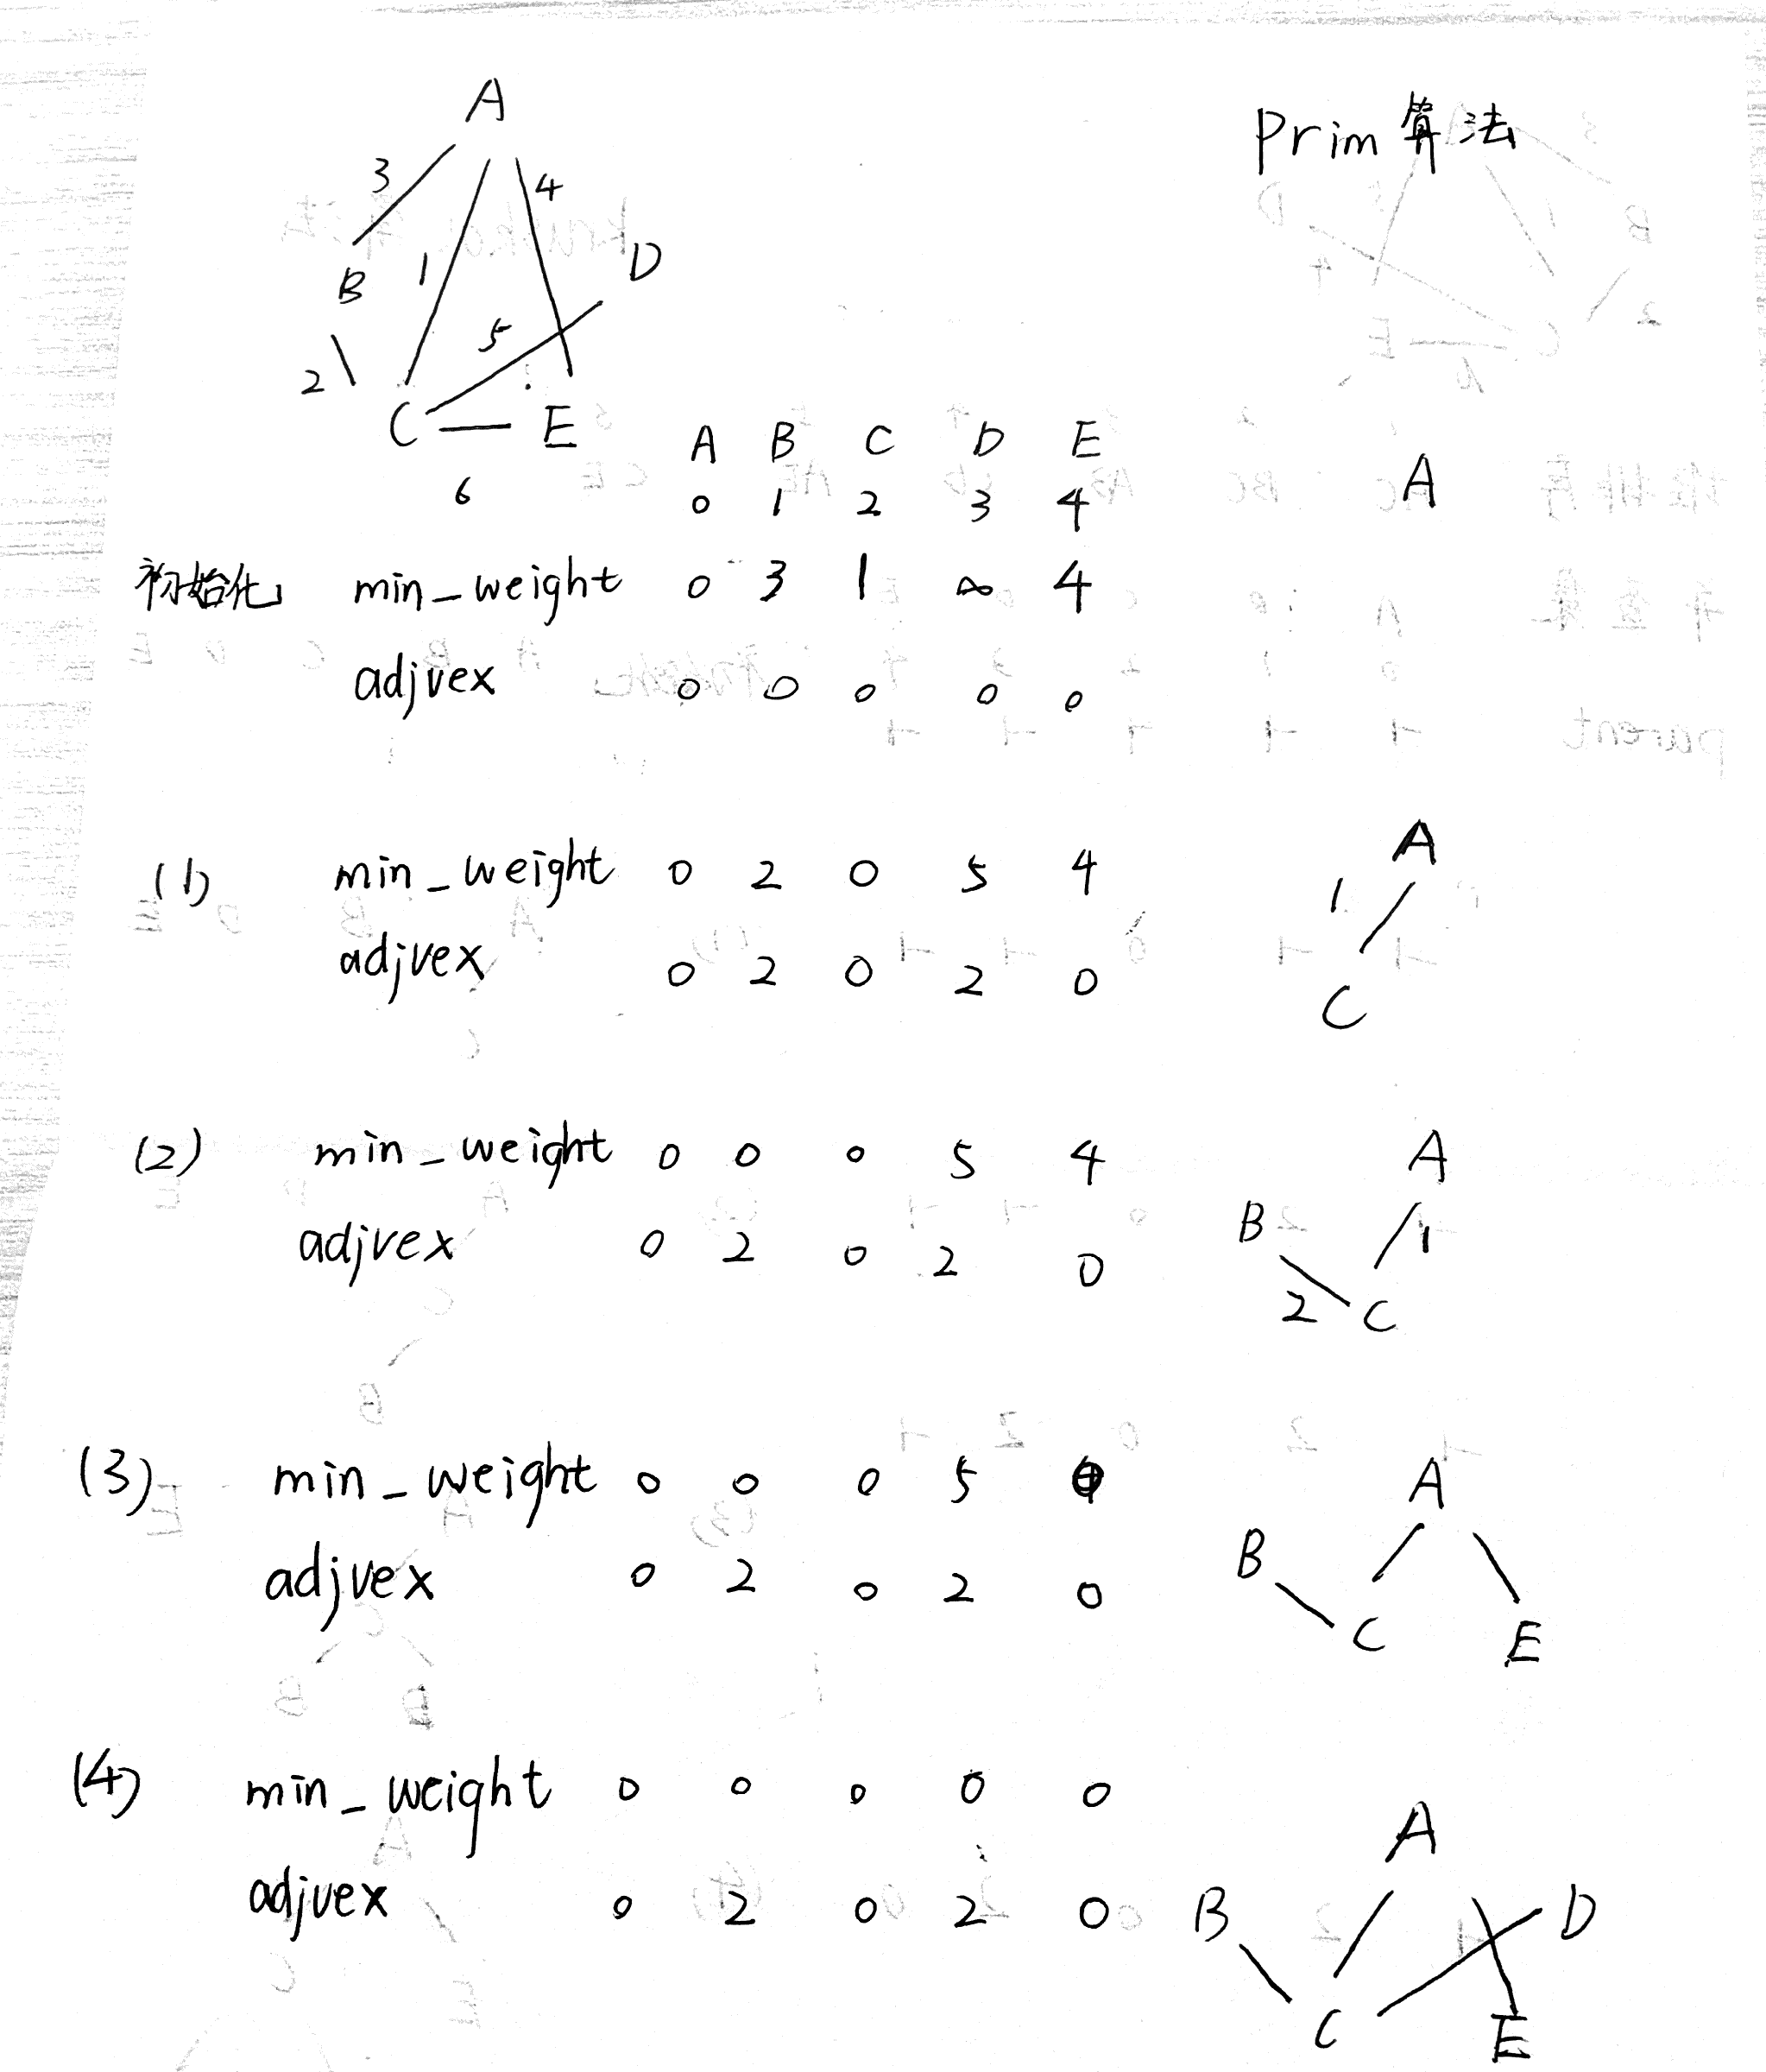 Prim 算法
A
3 4
B 1 D
5
2
C E
6
A B C D E
0 1 2 3 4
A
初始化 min_weight 0 3 1 ∞ 4
adjvex 0 0 0 0 0
(1) min_weight 0 2 0 5 4
adjvex 0 2 0 2 0
A
1
C
(2) min_weight 0 0 0 5 4
adjvex 0 2 0 2 0
A
B 1
2 C
(3) min_weight 0 0 0 5 0
adjvex 0 2 0 2 0
A
B
C E
(4) min_weight 0 0 0 0 0
adjvex 0 2 0 2 0
A
B D
C E